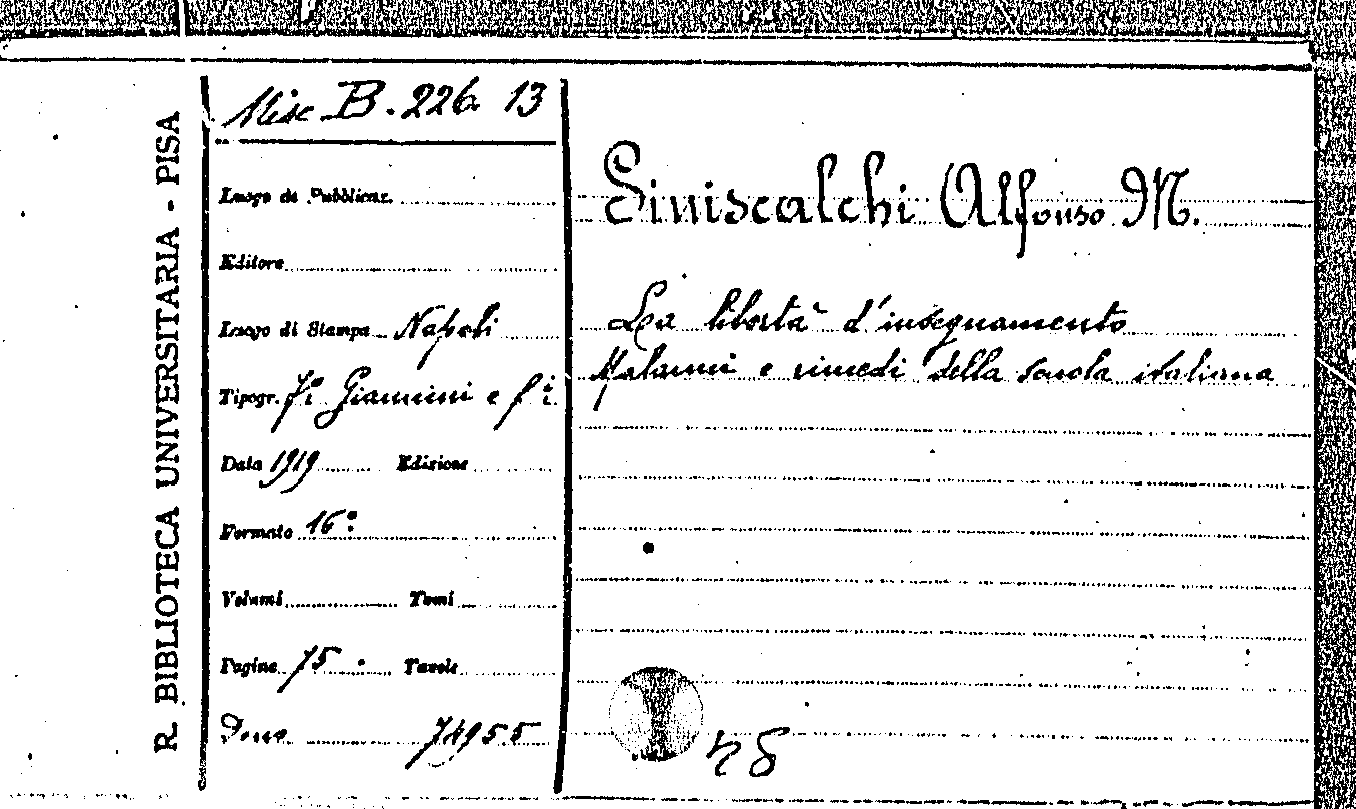 R. BIBLIOTECA UNIVERSITARIA - PISA
Misc B. 226. 13
Luogo di Pubblicaz.
Editore
Luogo di Stampa Napoli
Tipogr. Giannini e fi
Data 1919 Edizione
Formato 16°
Volumi Tomi
Pagine 75 Tavole
Dono 74955
Siniscalchi Alfonso M.
La libertà d'insegnamento
Malanni e rimedi della scuola italiana